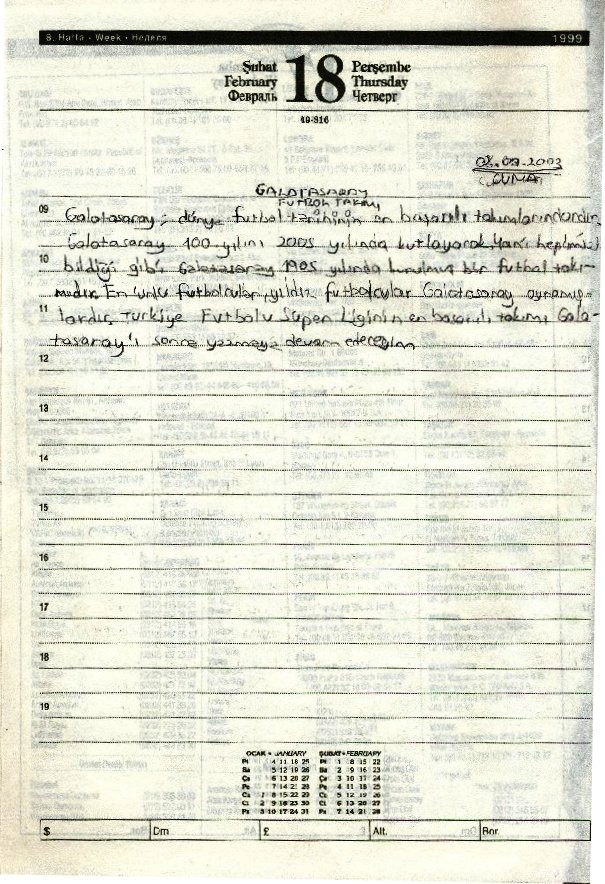 8. Hafta • Week • Неделя 1999
Şubat 18 Perşembe
February Thursday
Февраль Четверг
49-316
.09.2003
CUMA
GALATASARAY
FUTBOL TAKIMI
09 Galatasaray; dünya futbol tarihinin en başarılı takımlarındandır.
Galatasaray 100.yılını 2005 yılında kutlayacak. Hani hepimizi
10 bildiği gibi Galatasaray 1905 yılında kurulmuş bir futbol takı-
mıdır. En ünlü futbolcular, yıldız futbolcular Galatasaray oynamış-
11 lardır. Türkiye Futbolu Süper Liginin en başarılı takımı Gala-
tasaray'ı sonra yazmaya devam edeceğim
12
13
14
15
16
17
18
19
OCAK • JANUARY ŞUBAT • FEBRUARY
Pt 4 11 18 25 Pt 1 8 15 22
Sa 5 12 19 26 Sa 2 9 16 23
Ça 6 13 20 27 Ça 3 10 17 24
Pe 7 14 21 28 Pe 4 11 18 25
Cu 1 8 15 22 29 Cu 5 12 19 26
Ct 2 9 16 23 30 Ct 6 13 20 27
Pz 3 10 17 24 31 Pz 7 14 21 28
$ Dm £ Alt. Bnr.